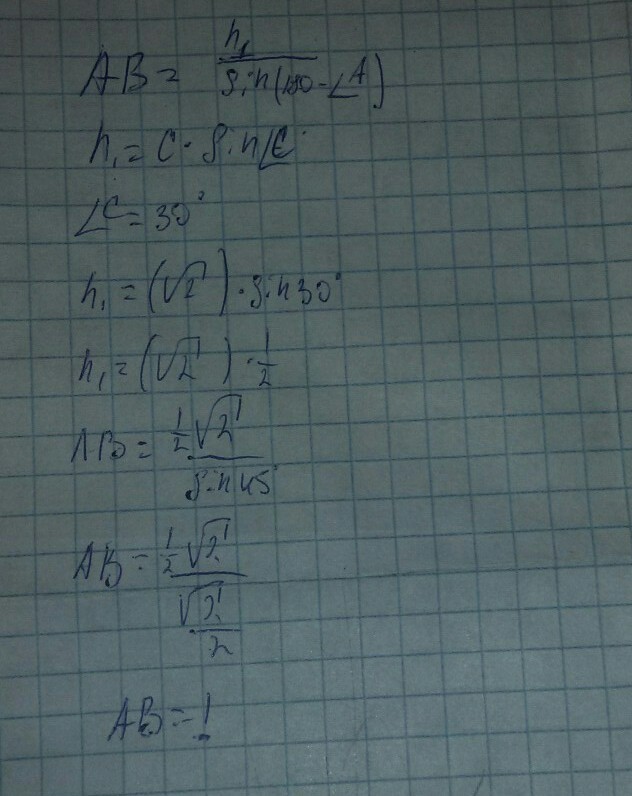 AB = h₁ / sin(180-∠A)
h₁ = C · sin∠C
∠C = 30°
h₁ = (√2) · sin30°
h₁ = (√2) · 1/2
AB = 1/2 √2 / sin45
AB = 1/2 √2 / √2/2
AB = 1